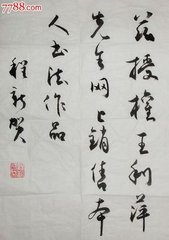 7788.com
兹授权王利萍
先生网上销售本
人书法作品
程新贺